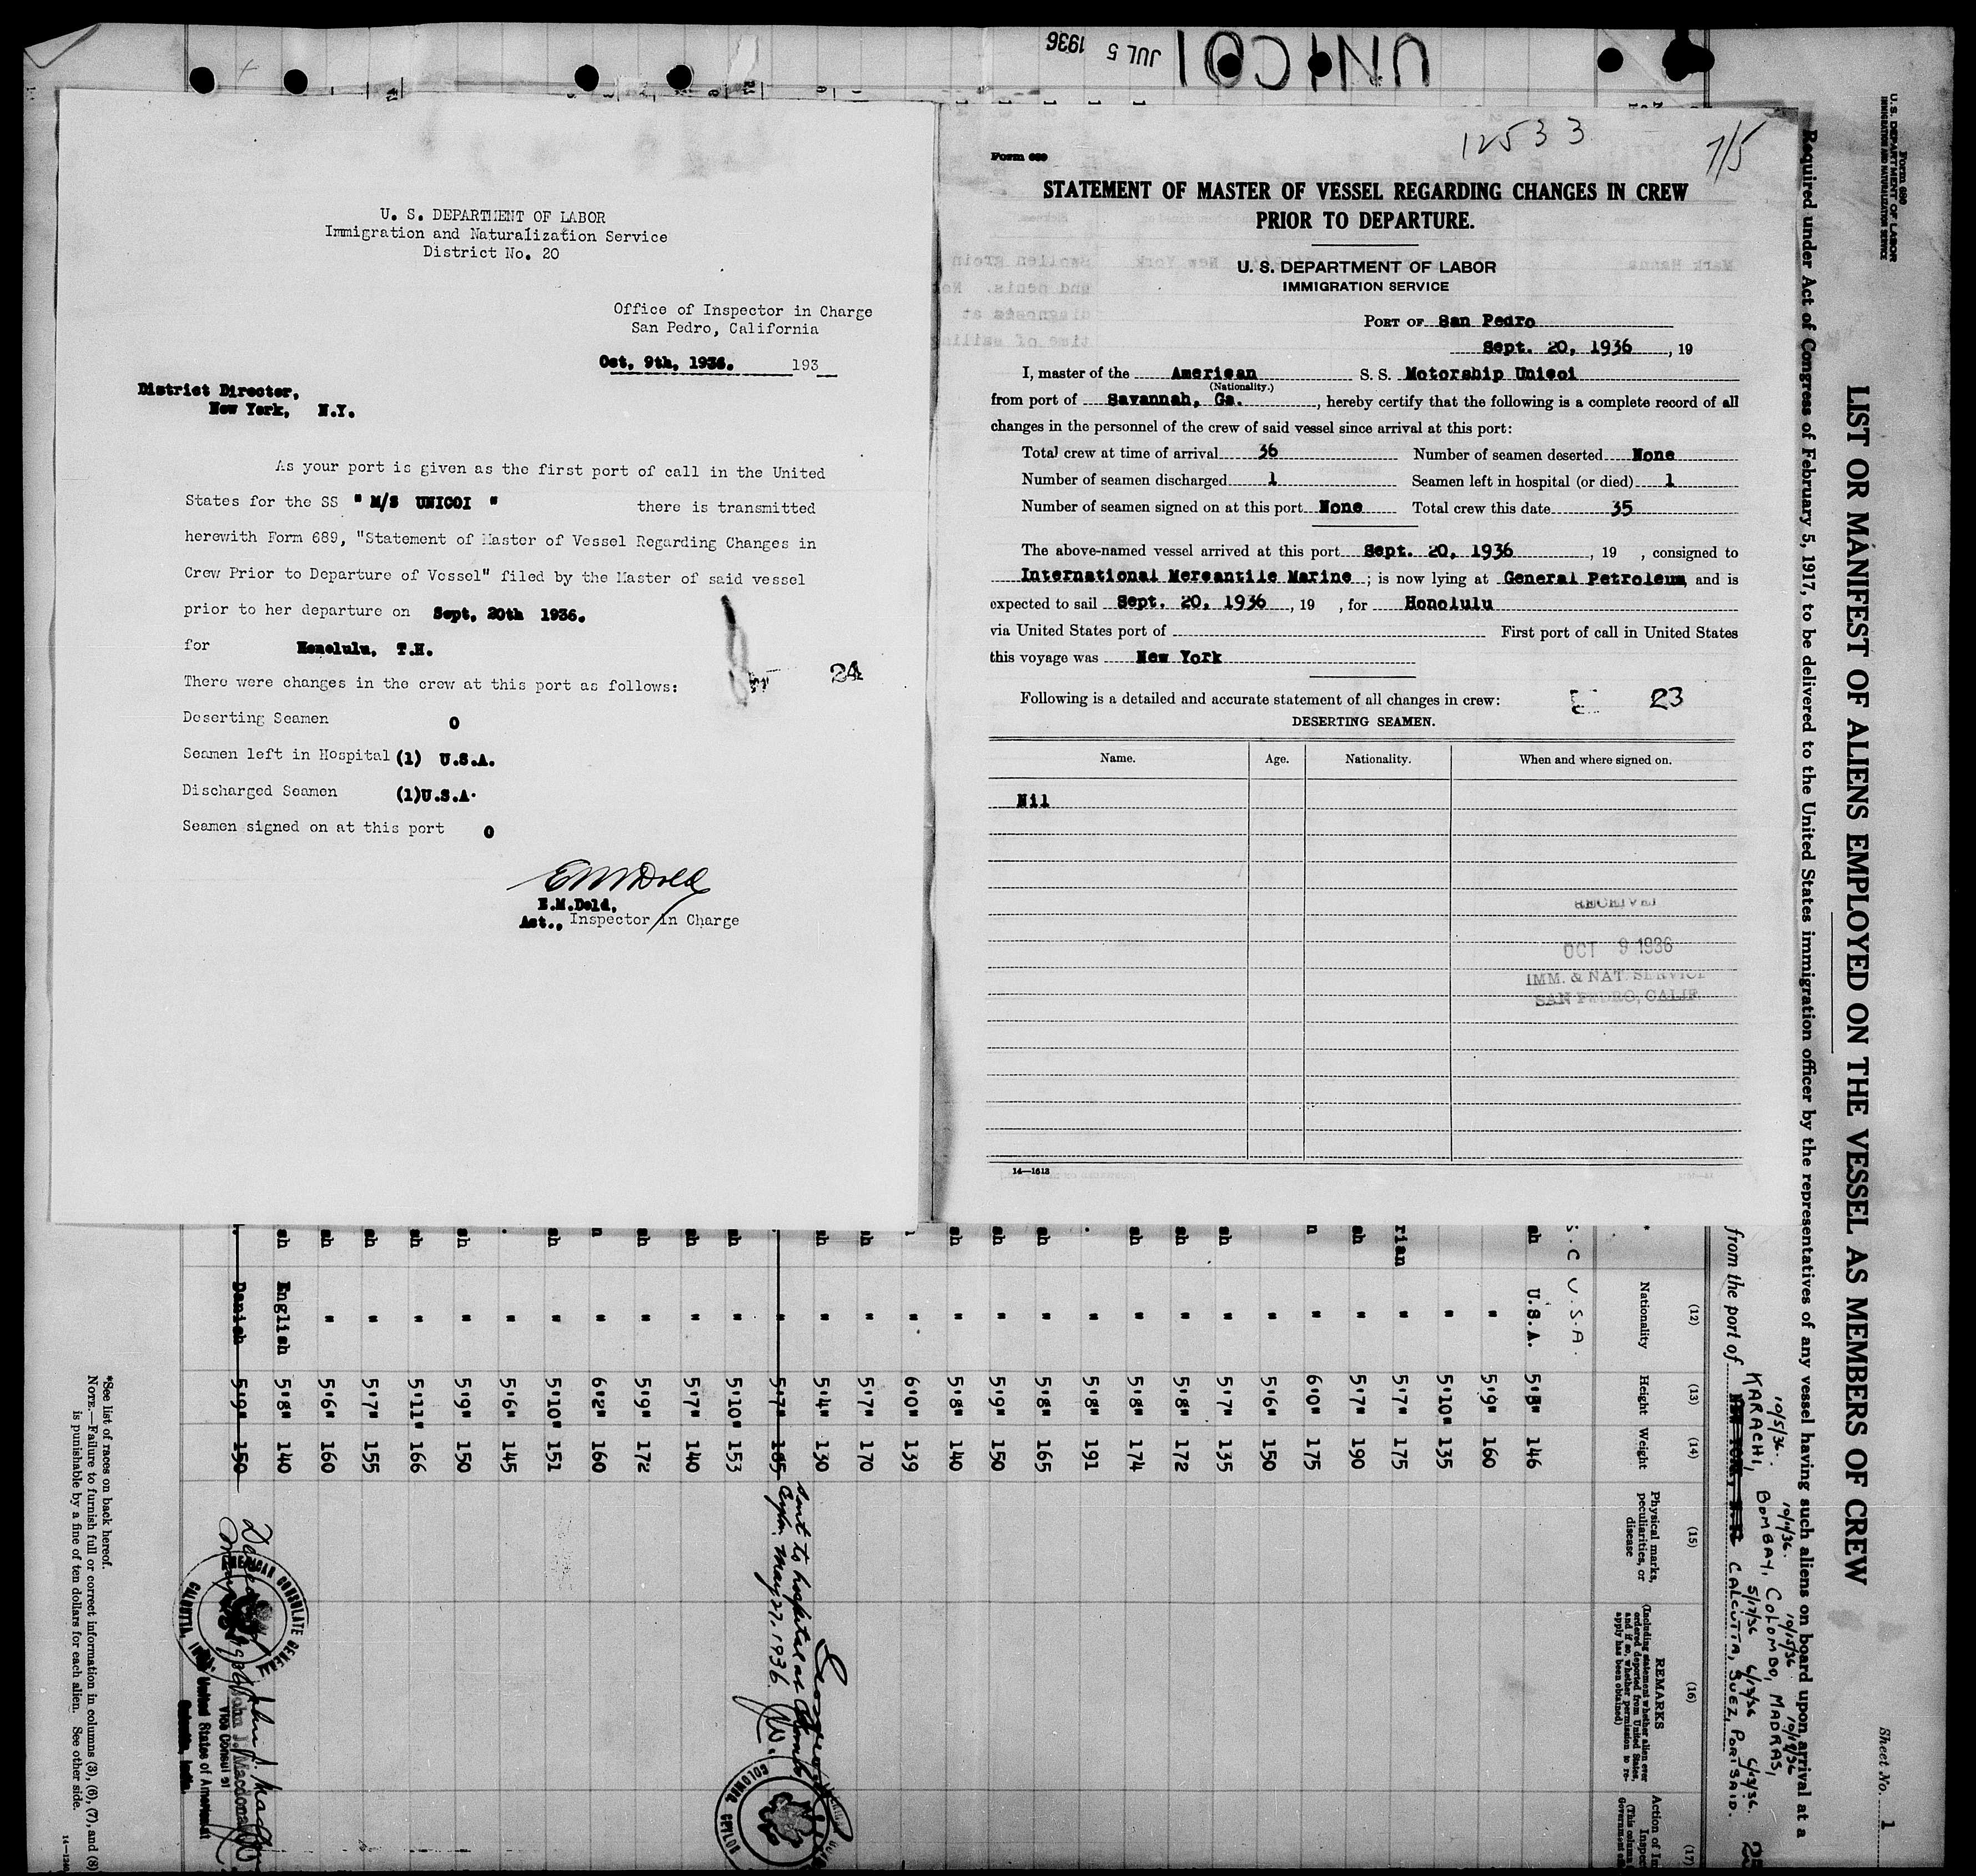 UNICOI
JUL 5 1936
U. S. DEPARTMENT OF LABOR
Immigration and Naturalization Service
District No. 20
Office of Inspector in Charge
San Pedro, California
Oct, 9th, 1936. 193
District Director,
New York, N.Y.
As your port is given as the first port of call in the United
States for the SS " M/S UNICOI " there is transmitted
herewith Form 689, "Statement of Master of Vessel Regarding Changes in
Crew Prior to Departure of Vessel" filed by the Master of said vessel
prior to her departure on Sept, 20th 1936.
for Honolulu, T.H.
24
There were changes in the crew at this port as follows:
Deserting Seamen 0
Seamen left in Hospital (1) U.S.A.
Discharged Seamen (1)U.S.A.
Seamen signed on at this port 0
E M Dold
E.M.Dold,
Act., Inspector in Charge
12533
7/5
Form 689
STATEMENT OF MASTER OF VESSEL REGARDING CHANGES IN CREW
PRIOR TO DEPARTURE.
U. S. DEPARTMENT OF LABOR
IMMIGRATION SERVICE
PORT OF San Pedro
Sept. 20, 1936, 19
I, master of the American S. S. Motorship Unicoi
(Nationality.)
from port of Savannah, Ga., hereby certify that the following is a complete record of all
changes in the personnel of the crew of said vessel since arrival at this port:
Total crew at time of arrival 36 Number of seamen deserted None
Number of seamen discharged 1 Seamen left in hospital (or died) 1
Number of seamen signed on at this port None Total crew this date 35
The above-named vessel arrived at this port Sept. 20, 1936, 19 , consigned to
International Mercantile Marine; is now lying at General Petroleum and is
expected to sail Sept. 20, 1936, 19 , for Honolulu
via United States port of First port of call in United States
this voyage was New York
Following is a detailed and accurate statement of all changes in crew: 23
DESERTING SEAMEN.
Name. Age. Nationality. When and where signed on.
Nil
RECEIVED
OCT 9 1936
IMM. & NAT. SERVICE
SAN PEDRO, CALIF.
14—1613
Form 680
U. S. DEPARTMENT OF LABOR
IMMIGRATION AND NATURALIZATION SERVICE
Sheet No. 1
LIST OR MANIFEST OF ALIENS EMPLOYED ON THE VESSEL AS MEMBERS OF CREW
Required under Act of Congress of February 5, 1917, to be delivered to the United States immigration officer by the representatives of any vessel having such aliens on board upon arrival at a
10/5/36. 10/11/36. 10/15/36 10/19/36
KARACHI, BOMBAY, COLOMBO, MADRAS,
5/17/36 6/13/36 6/13/36.
from the port of CALCUTTA, SUEZ, PORT SAID.
(12) (13) (14) (15) (16) (17)
Nationality Height Weight Physical marks, peculiarities, or disease REMARKS
(Including statement whether alien ever ordered deported from United States, and if so, whether permission to reapply has been obtained)
S.C U.S.A.
sh U.S.A. 5'8" 146
" 5'9" 160
" 5'10" 135
rian " 5'7" 175
sh " 5'7" 190
n " 6'0" 175
" 5'6" 150
sh " 5'7" 135
sh " 5'8" 172
sh " 5'8" 174
" 5'8" 191
sh " 5'8" 165
sh " 5'9" 150
sh " 5'8" 140
" 6'0" 139
sh " 5'7" 170
sh " 5'4" 130
" 5'7" 185 Sent to hospital at Colombo, Ceylon. May 27, 1936.
sh " 5'10" 153
sh " 5'7" 140
sh " 5'9" 172
n " 6'2" 160
sh " 5'10" 151
" 5'6" 145
sh " 5'9" 150
sh " 5'11" 166
sh " 5'7" 155
sh " 5'6" 160
sh English 5'8" 140
Danish 5'9" 150
COLOMBO, CEYLON
AMERICAN CONSULATE GENERAL
CALCUTTA, INDIA
John J. Macdonald
Vice Consul of
United States of America at
Calcutta, India.
*See list of races on back hereof.
NOTE.—Failure to furnish full or correct information in columns (3), (6), (7), and (8)
is punishable by a fine of ten dollars for each alien. See other side.